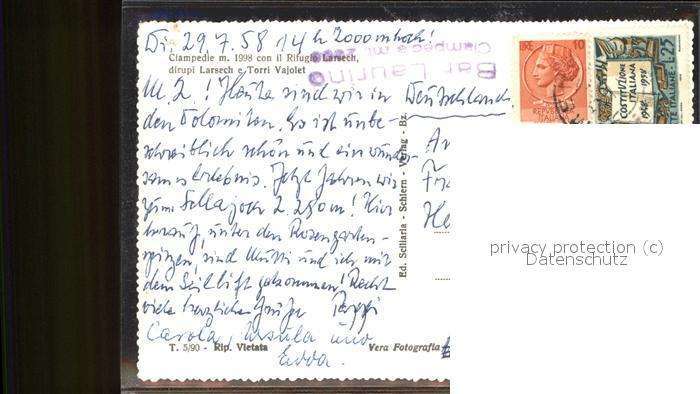 Di, 29.7.58 14 h 2000 m hoch!
Ciampedie m. 1998 con il Rifugio Larsech,
dirupi Larsech e Torri Vajolet
Bar Laurino
Ciampedie mt. 2000
M. L.! Heute sind wir in
den Dolomiten. Es ist unbe-
schreiblich schön und ein wunder-
sames Erlebnis. Jetzt fahren wir
zum Sellajoch 2.250 m! Hier
herauf, unter den Rosengarten-
spitzen, sind Mutti und ich mit
dem Seillift gekommen! Recht
viele herzliche Grüße Pappi
Carola, Ursula und
Edda.
T. 5/90 - Rip. Vietata
Vera Fotografia
Ed. Sciliaria - Schlern - Verlag - Bz.
Deutschland
An
He
LIRE 10
COSTITUZIONE
ITALIANA
1948 1958
L. 25
privacy protection (c)
Datenschutz